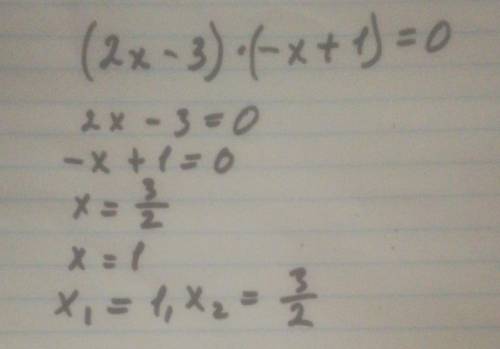 (2x - 3) · (-x + 1) = 0
2x - 3 = 0
-x + 1 = 0
x = 3/2
x = 1
x₁ = 1, x₂ = 3/2